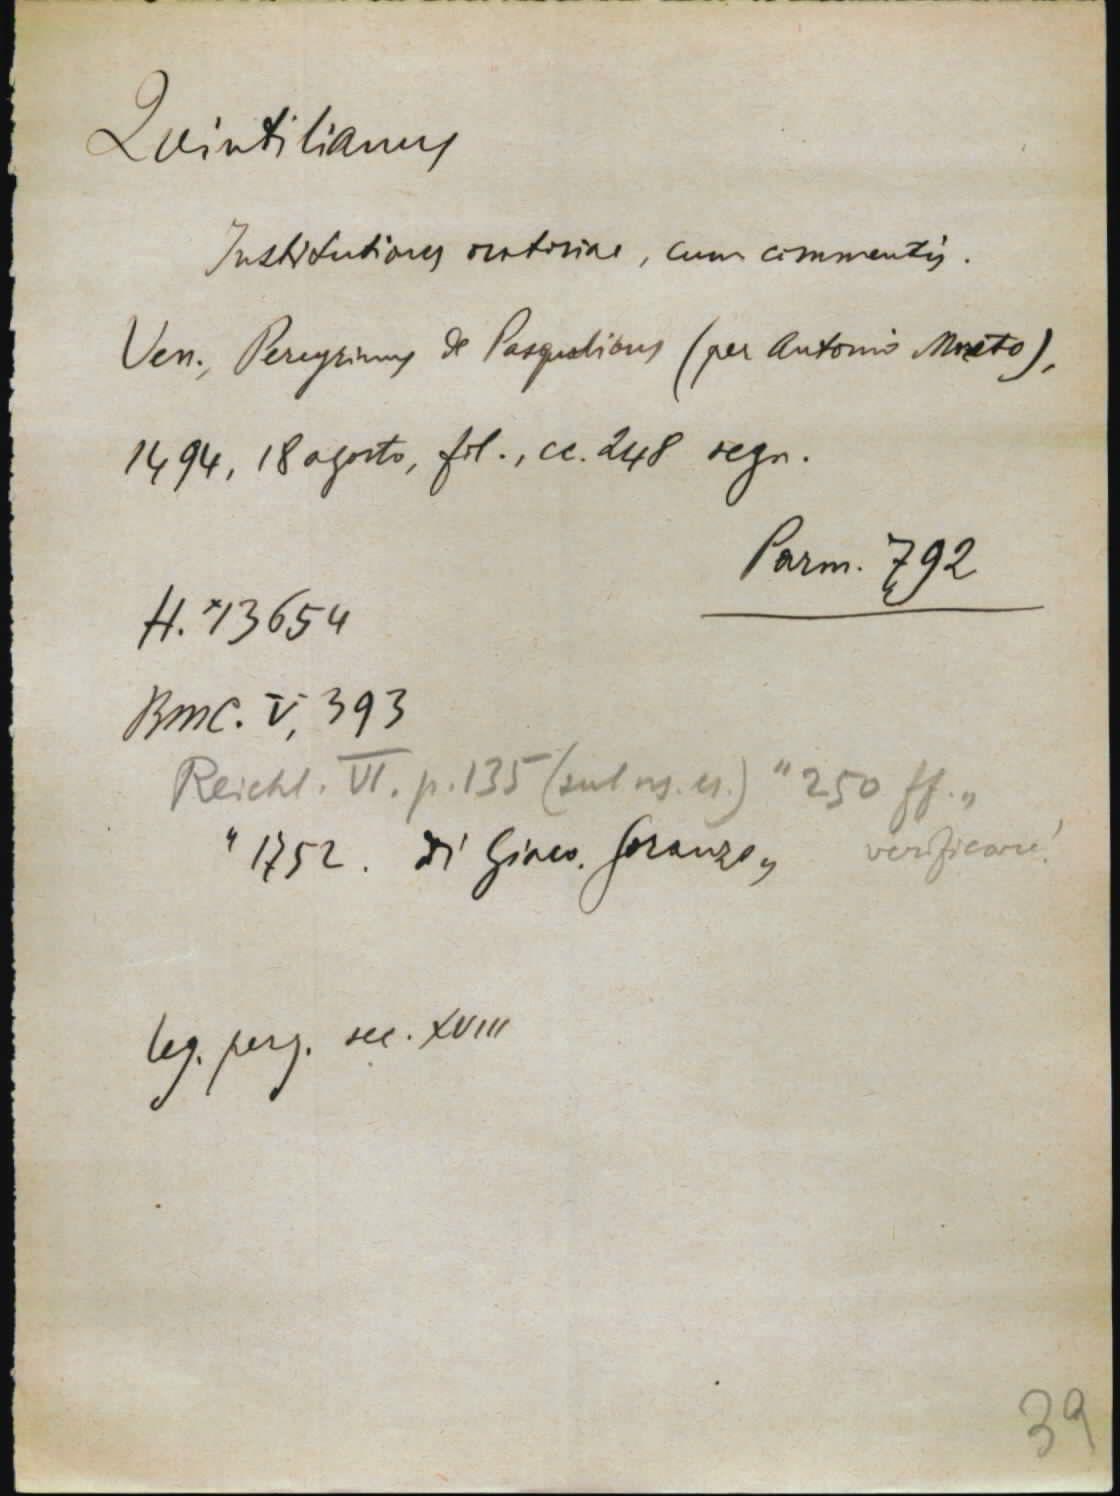 Quintilianus
Institutiones oratoriae, cum commentis.
Ven., Peregrinus de Pasqualibus (per Antonio Moreto),
1494, 18 agosto, fol., cc. 248 segn.
Parm. 792
H. *13654
BMC. V, 393
Reichl. VI. p. 135 (sul ns. es.) "250 ff."
"1752. di Giaco. Soranzo" verificare!
leg. perg. sec. XVIII
39